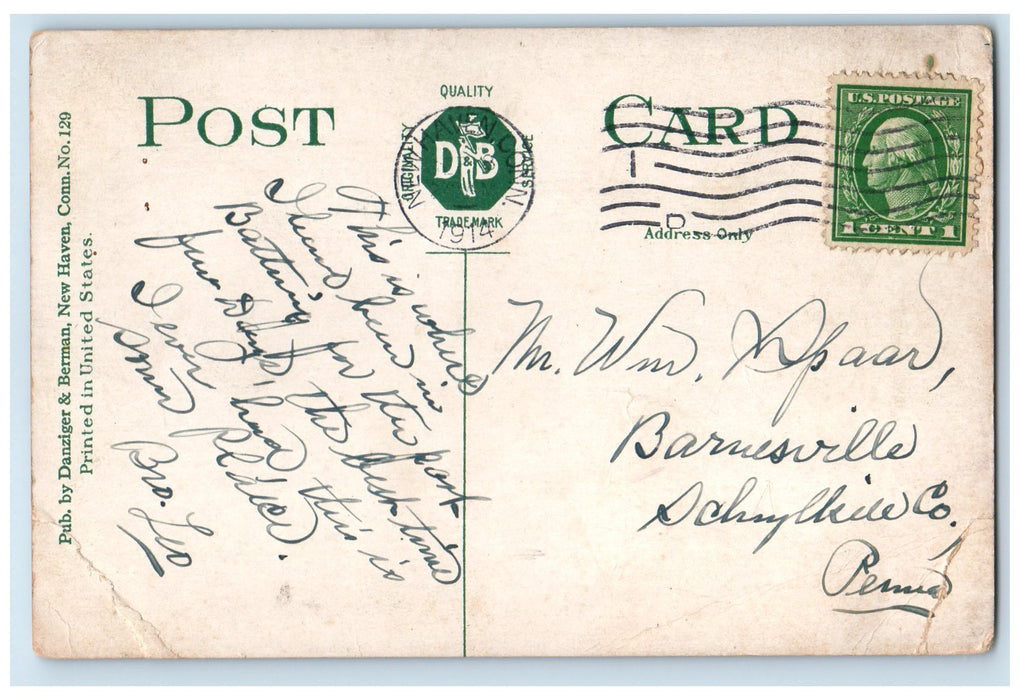 Pub. by Danziger & Berman, New Haven, Conn. No. 129
Printed in United States.
POST CARD
QUALITY
ORIGINALITY
D & B
SERVICE
TRADE MARK
N HAVEN CONN.
1914
D
Address Only
U.S. POSTAGE
1 CENT 1
This is where
I have been in
Batting for the past
few days, the best time
I ever had this is
some
Bro. Leo
Mr. Wm. Spaar,
Barnesville
Schuylkill Co,
Penna